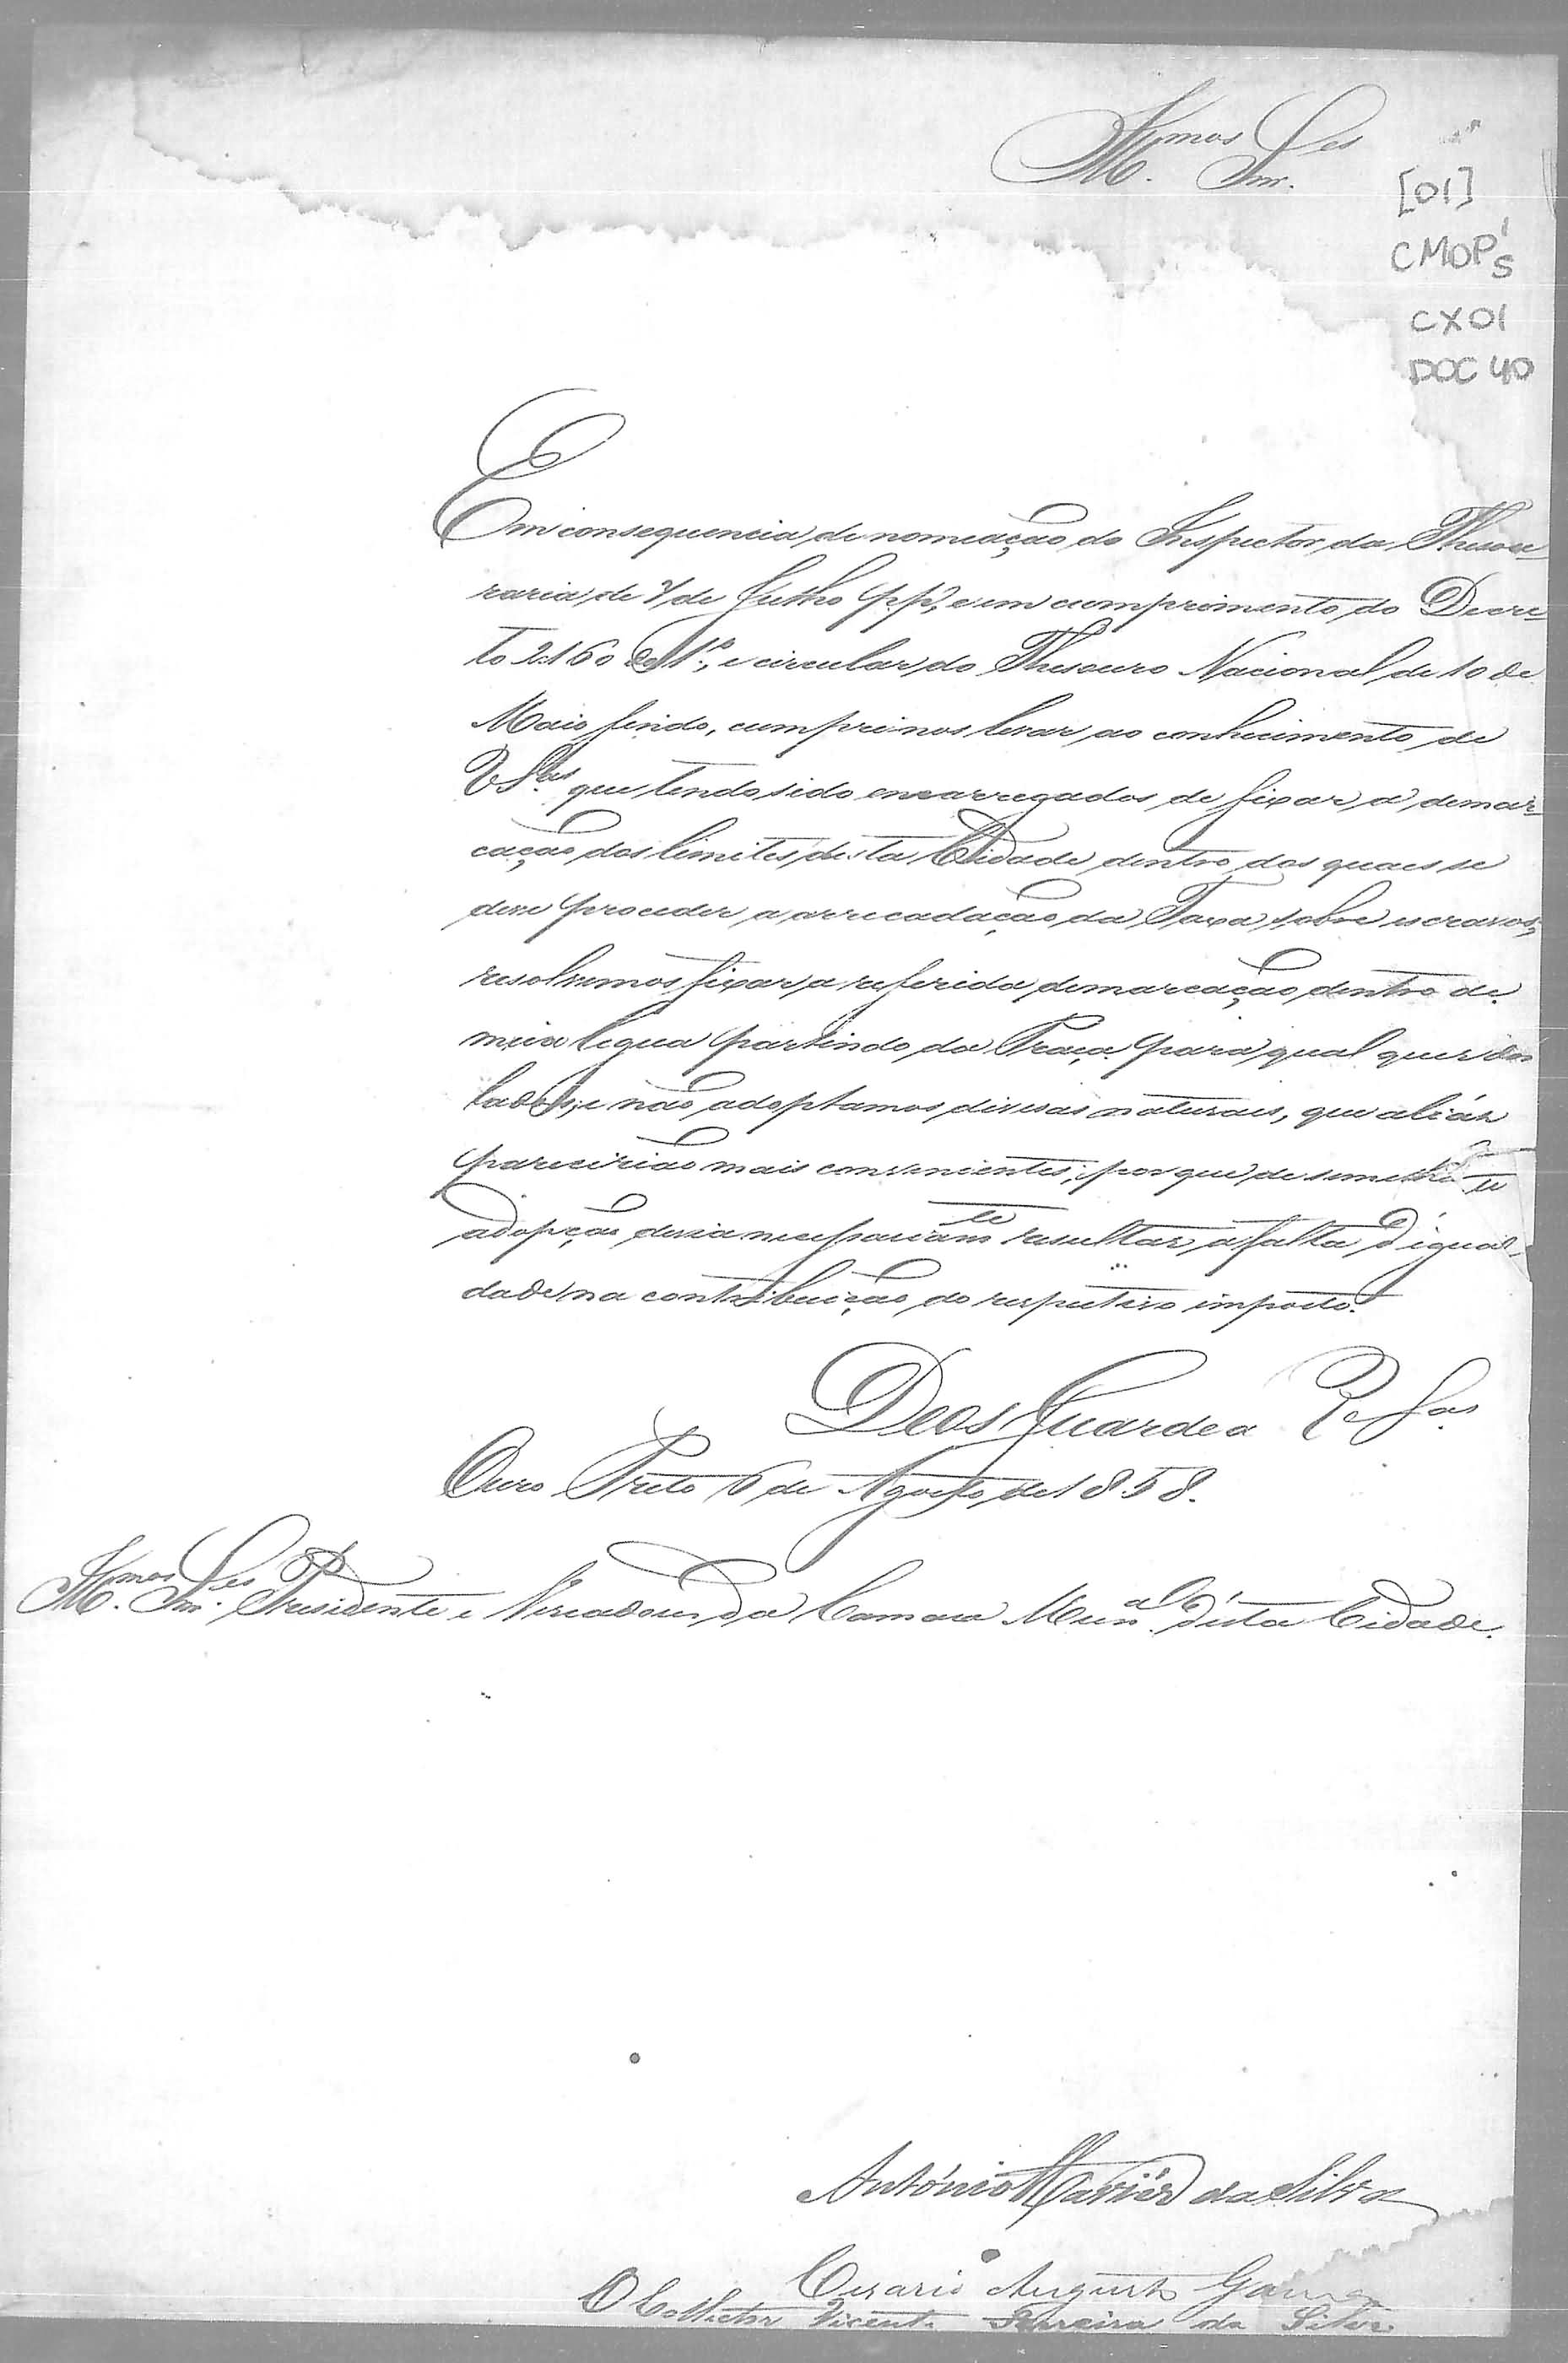 Ill.mos Snr.es
[01]
CMOP's
CX01
DOC 40
Em consequencia de nomeação do Inspector da Thesou-
raria, de 7 de Julho pp., e em cumprimento do Decre-
to 2160 do 1º, e circular do Thesouro Nacional de 10 de
Maio findo, cumpre-nos levar ao conhecimento de
V S.as que tendo sido encarregados de fixar a demar-
cação dos limites desta Cidade dentro dos quaes se
deve proceder a arrecadação da Taxa sobre escravos,
resolvemos fixar a referida demarcação dentro de
meia legua partindo da Praça para qual quer dos
lados; e não adoptamos divisas naturaes, que aliás
parecirião mais convenientes, porque de semelhante
adopção devia necessariam.te resultar a falta d'igual-
dade na contribuição do respectivo imposto.
Deos Guarde a V.as S.as
Ouro Preto 6 de Agosto de 1858.
Ill.mos Snr.es Presidente e Vereadores da Camara Mun.al d'esta Cidade.
António Xavier da Silva
Cesario Augusto Gama
O Collector Vicente Ferreira da Silva